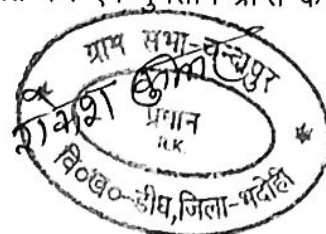 ग्राम सभा-चन्द्रपुर
राकेश कुमार
प्रधान
R.K.
वि०ख०-डीघ,जिला-भदोही